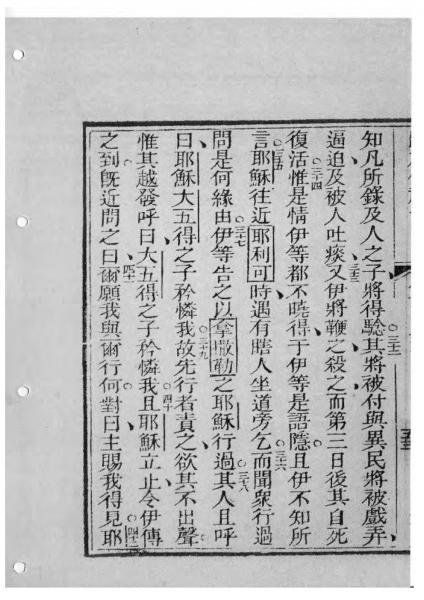 知凡所錄及人之子將得驗其○三十二將被付與異民將被戲弄
逼迫及被人吐痰○三十三又伊將鞭之殺之而第三日後其自死
復活○三十四惟是情伊等都不曉得于伊等是語隱且伊不知所
言○三十五耶穌往近耶利可時遇有瞎人坐道旁乞○三十六而聞衆行過
問是何緣由○三十七伊等告之以拿撒勒之耶穌行過○三十八其人且呼
曰耶穌大五得之子矜憐我○三十九故先行者責之欲其不出聲
惟其越發呼曰大五得之子矜憐我○四十且耶穌立止令伊傳
之到旣近問之曰○四十一爾願我與爾行何對曰主賜我得見○四十二耶